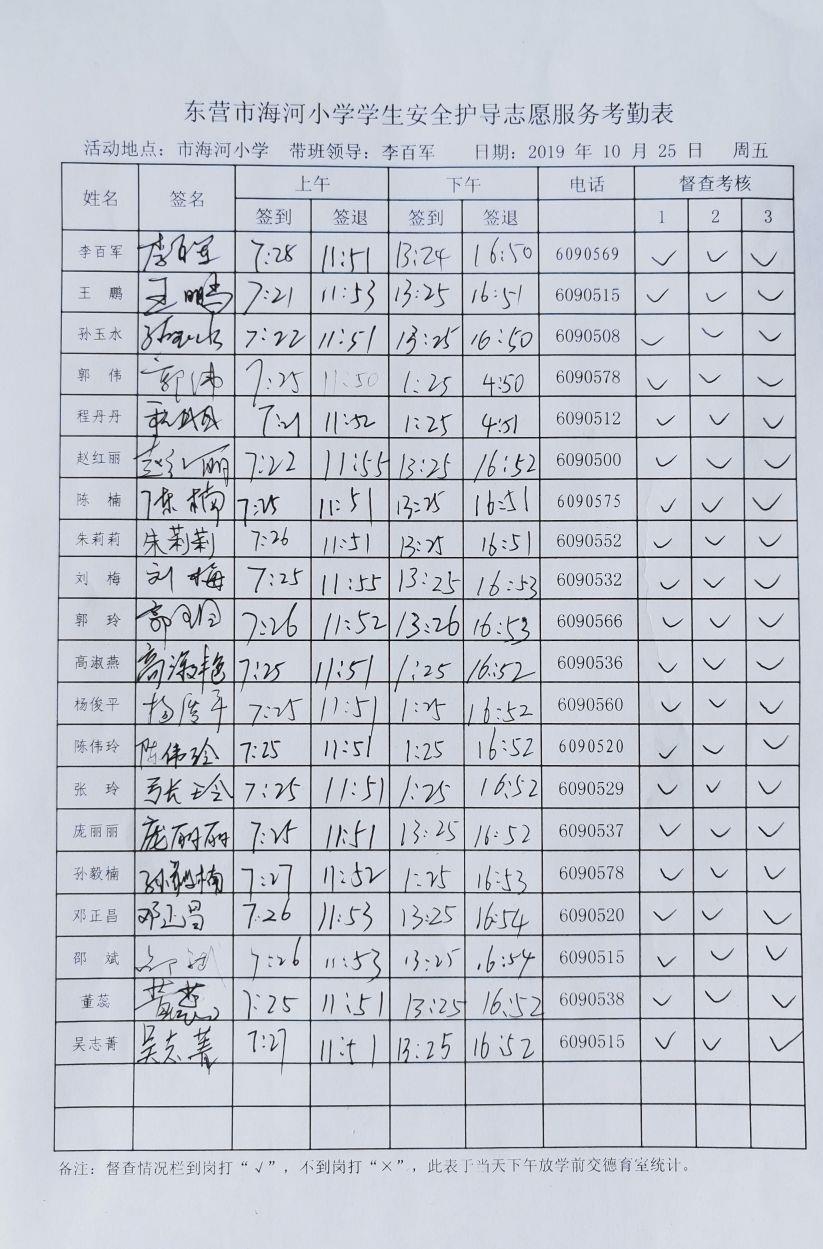 东营市海河小学学生安全护导志愿服务考勤表
活动地点：市海河小学 带班领导：李百军 日期：2019 年 10 月 25 日 周五
姓名 签名 上午 下午 电话 督查考核
签到 签退 签到 签退 1 2 3
李百军 李百军 7:28 11:51 13:24 16:50 6090569 ✓ ✓ ✓
王 鹏 王鹏 7:21 11:53 13:25 16:51 6090515 ✓ ✓ ✓
孙玉水 孙玉水 7:22 11:51 13:25 16:50 6090508 ✓ ✓ ✓
郭 伟 郭伟 7:25 11:50 1:25 4:50 6090578 ✓ ✓ ✓
程丹丹 程丹丹 7:21 11:52 1:25 4:51 6090512 ✓ ✓ ✓
赵红丽 赵红丽 7:22 11:55 13:25 16:52 6090500 ✓ ✓ ✓
陈 楠 陈楠 7:25 11:51 13:25 16:51 6090575 ✓ ✓ ✓
朱莉莉 朱莉莉 7:26 11:51 13:25 16:51 6090552 ✓ ✓ ✓
刘 梅 刘梅 7:25 11:55 13:25 16:53 6090532 ✓ ✓ ✓
郭 玲 郭玲 7:26 11:52 13:26 16:53 6090566 ✓ ✓ ✓
高淑燕 高淑艳 7:25 11:51 1:25 16:52 6090536 ✓ ✓ ✓
杨俊平 杨俊平 7:25 11:51 1:25 16:52 6090560 ✓ ✓ ✓
陈伟玲 陈伟玲 7:25 11:51 1:25 16:52 6090520 ✓ ✓ ✓
张 玲 张玲 7:25 11:51 1:25 16:52 6090529 ✓ ✓ ✓
庞丽丽 庞丽丽 7:25 11:51 13:25 16:52 6090537 ✓ ✓ ✓
孙毅楠 孙毅楠 7:27 11:52 1:25 16:53 6090578 ✓ ✓ ✓
邓正昌 邓正昌 7:26 11:53 13:25 16:54 6090520 ✓ ✓ ✓
邵 斌 邵斌 7:26 11:53 13:25 16:54 6090515 ✓ ✓ ✓
董蕊 董蕊 7:25 11:51 13:25 16:52 6090538 ✓ ✓ ✓
吴志菁 吴志菁 7:27 11:51 13:25 16:52 6090515 ✓ ✓ ✓
备注：督查情况栏到岗打“√”，不到岗打“×”，此表于当天下午放学前交德育室统计。